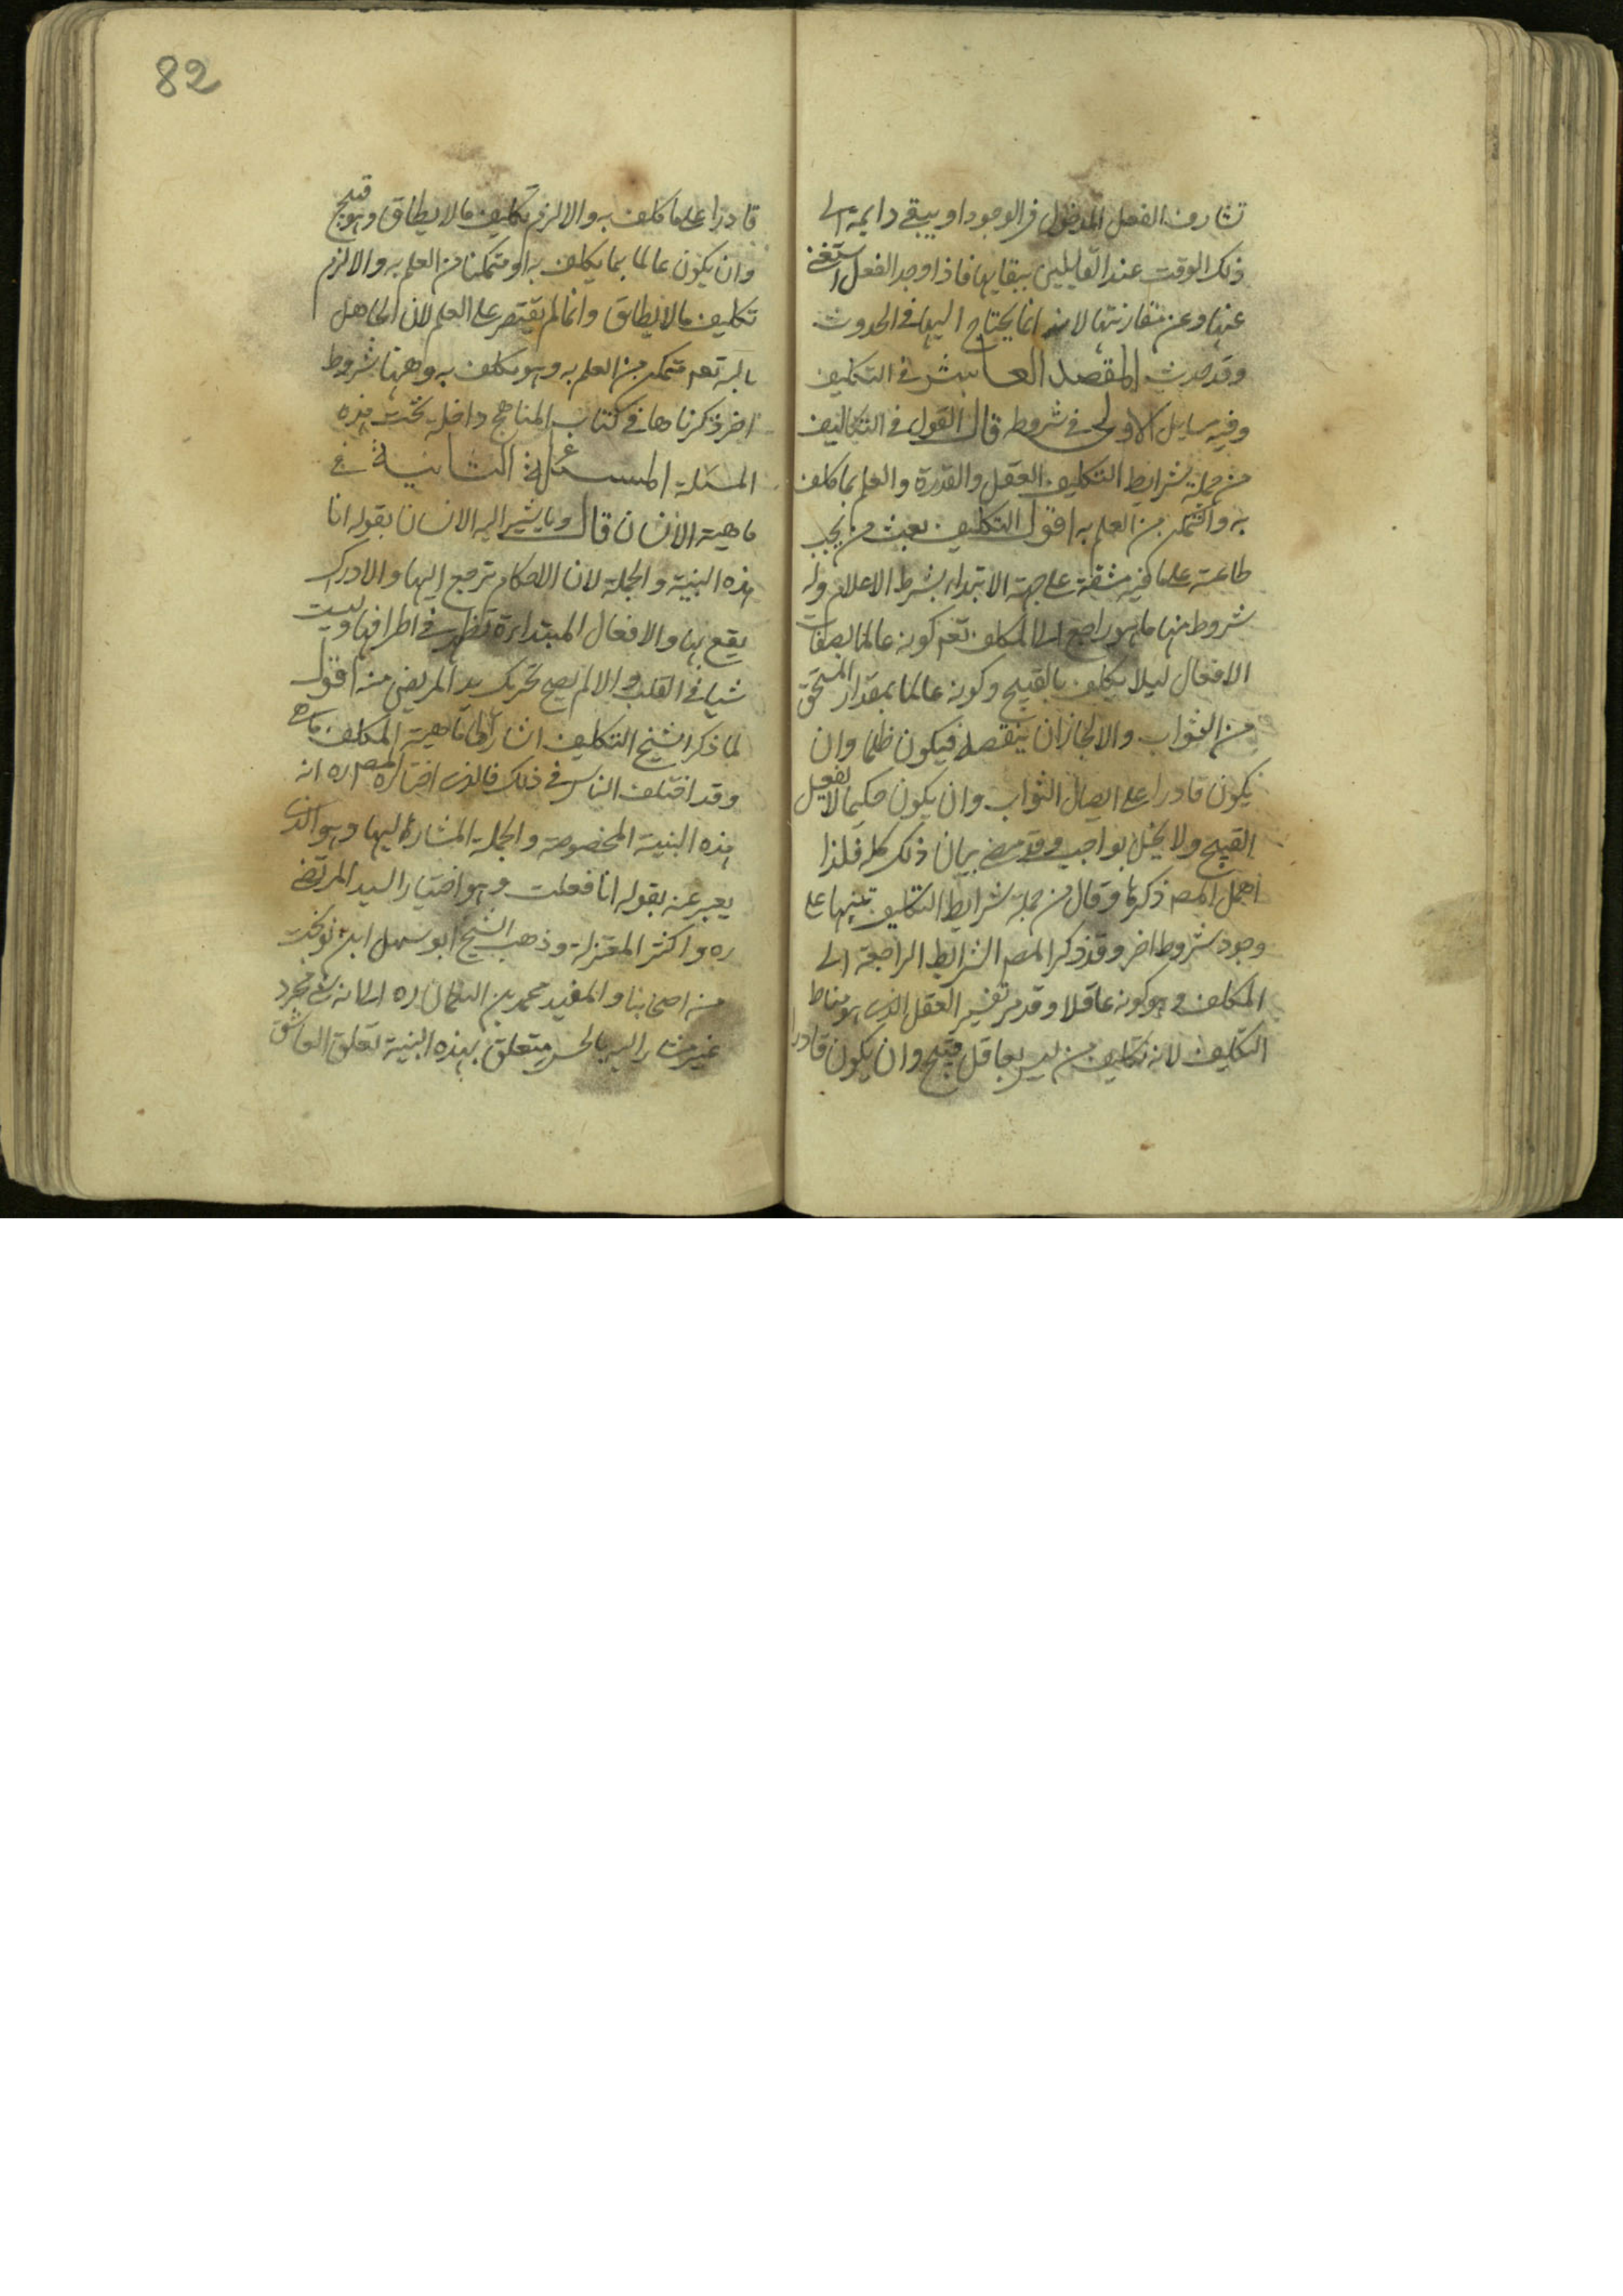 تشارف الفعل المدخول في الوجود او يبقى دايمة الى
ذلك الوقت عند القايلين ببقايها فاذا وجد الفعل استغنى
عنها وعن مقارنتها لانه انما يحتاج اليها في الحدوث
وقد حدث المقصد العاشر في التكليف
وفيه مسايل الاولى في شروطه قال القول في التكاليف
من جملة شرايط التكليف العقل والقدرة والعلم بما كلف
به والتمكن من العلم به اقول التكليف بعث من يجب
طاعته على ما فيه مشقة على جهة الابتداء بشرط الاعلام وله
شروط منها ما هو راجع الى المكلف تعم كونه عالما بصفات
الافعال ليلا يكلف بالقبيح وكونه عالما بمقدار المستحق
من الثواب والا لجاز ان ينقصه فيكون ظلما وان
يكون قادرا على ايصال الثواب وان يكون حكيما لا يفعل
القبيح ولا يخل بواجب وقد مضى بيان ذلك كله فلذا
اهمل المصم ذكرها وقال من جملة شرايط التكليف تنبيها على
وجود شروط اخر وقد ذكر المصم الشرايط الراجعة الى
المكلف وهو كونه عاقلا وقد مر تفسير العقل الذي هو مناط
التكليف لانه تكليف من ليس بعاقل قبيح وان يكون قادرا
82
قادرا على ما كلف به والا لزم تكليف ما لا يطاق وهو قبيح
وان يكون عالما بما يكلف به او متمكنا من العلم به والا لزم
تكليف ما لا يطاق وانما لم يقتصر على العلم لان الجاهل
بالله تعم متمكن من العلم به وهو مكلف به وههنا شروط
اخر ذكرناها في كتاب المناهج داخلة تحت هذه
المسئلة المسئلة الثانية في
ماهية الانسان قال وما يشير اليه الانسان بقوله انا
هذه البنية والجملة لان الاحكام ترجع اليها والادراك
يقع بها والافعال المبتداءة تظهر في اطرافها وليست
شيا في القلب والا لم يصح تحريك يد المريض منه اقول
لما ذكر الشيخ التكليف اشار الى ماهية المكلف ما هي
وقد اختلف الناس في ذلك فالذي اختاره المصم ره انه
هذه البنية المخصوصة والجملة المشار اليها وهو الذي
يعبر عنه بقوله انا فعلت وهو اختيار السيد المرتضى
ره واكثر المعتزلة وذهب الشيخ ابو سهل ابن نوبخت
من اصحابنا والمفيد محمد بن النعمان ره الى انه شي مجرد
غير مشار اليه بالحس متعلق بهذه البنية تعلق العاشق